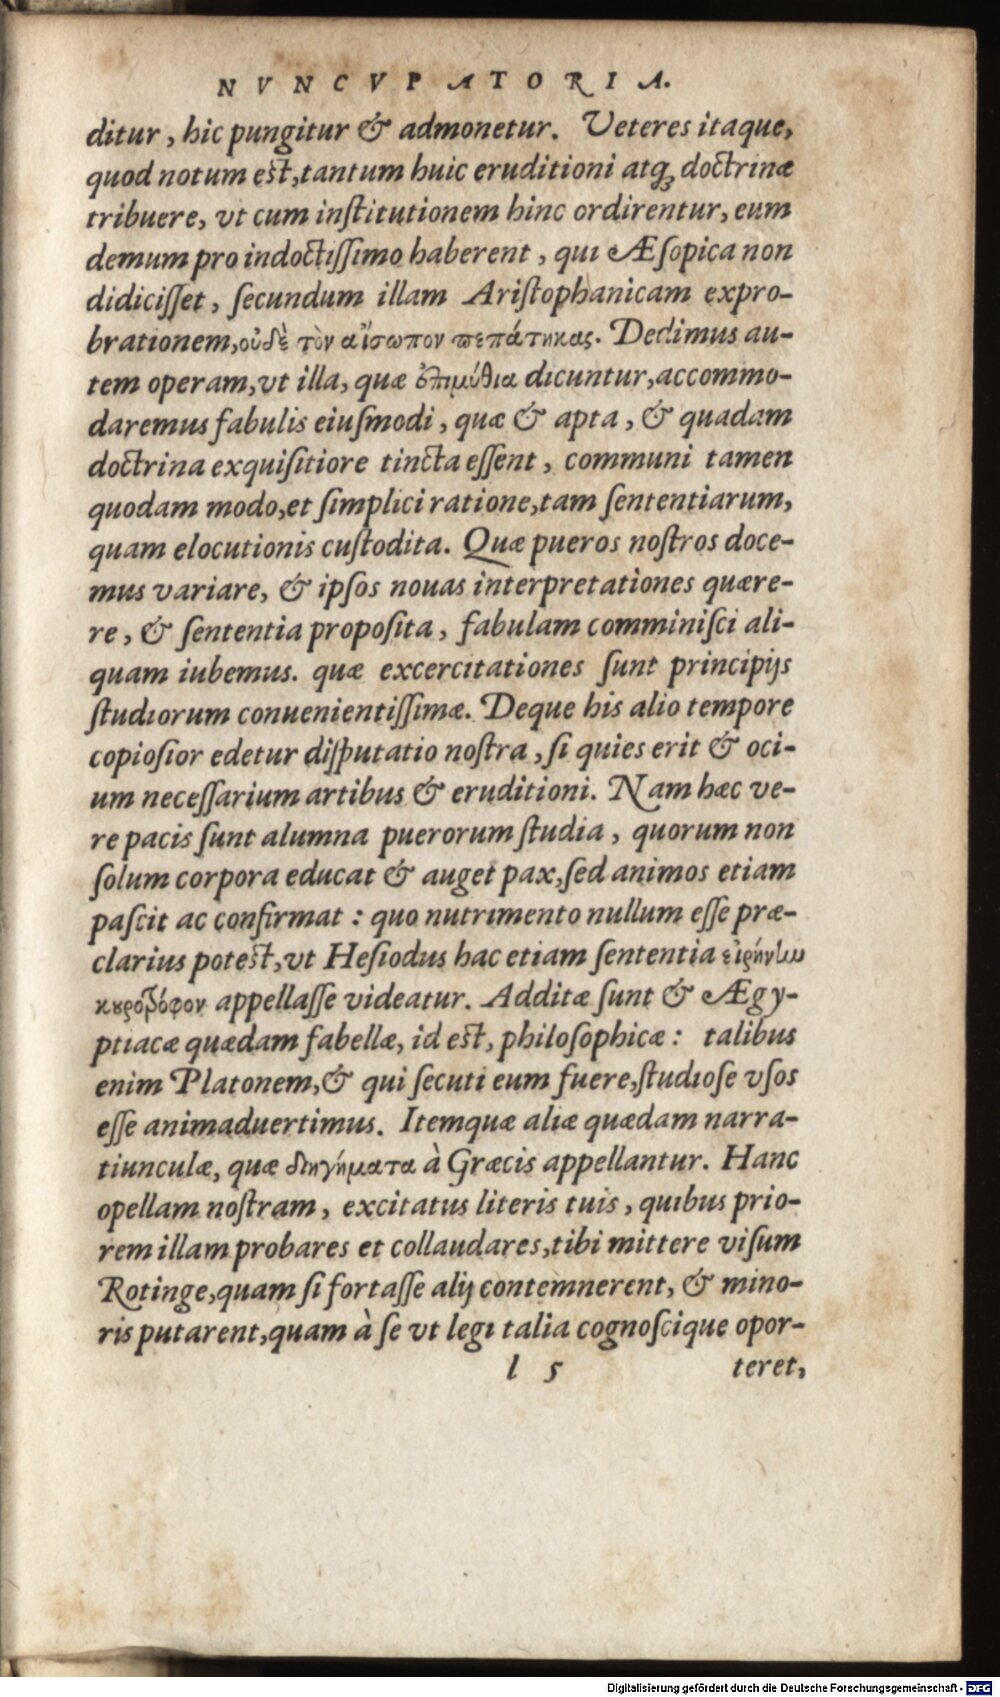 NVNCVPATORIA.
ditur, hic pungitur & admonetur. Veteres itaque,
quod notum est, tantum huic eruditioni atq; doctrinæ
tribuere, vt cum institutionem hinc ordirentur, eum
demum pro indoctissimo haberent, qui Æsopica non
didicisset, secundum illam Aristophanicam expro-
brationem, οὐδὲ τὸν αἴσωπον πεπάτηκας. Dedimus au-
tem operam, vt illa, quæ ἐπιμύθια dicuntur, accommo-
daremus fabulis eiusmodi, quæ & apta, & quadam
doctrina exquisitiore tincta essent, communi tamen
quodam modo, et simplici ratione, tam sententiarum,
quam elocutionis custodita. Quæ pueros nostros doce-
mus variare, & ipsos nouas interpretationes quære-
re, & sententia proposita, fabulam comminisci ali-
quam iubemus. quæ excercitationes sunt principijs
studiorum conuenientissimæ. Deque his alio tempore
copiosior edetur disputatio nostra, si quies erit & oci-
um necessarium artibus & eruditioni. Nam hæc ve-
re pacis sunt alumna puerorum studia, quorum non
solum corpora educat & auget pax, sed animos etiam
pascit ac confirmat: quo nutrimento nullum esse præ-
clarius potest, vt Hesiodus hac etiam sententia εἰρήνην
κουροτρόφον appellasse videatur. Additæ sunt & Ægy-
ptiacæ quædam fabellæ, id est, philosophicæ: talibus
enim Platonem, & qui secuti eum fuere, studiose vsos
esse animaduertimus. Itemquæ aliæ quædam narra-
tiunculæ, quæ διηγήματα à Græcis appellantur. Hanc
opellam nostram, excitatus literis tuis, quibus prio-
rem illam probares et collaudares, tibi mittere visum
Rotinge, quam si fortasse alij contemnerent, & mino-
ris putarent, quam à se vt legi talia cognoscique opor-
l 5 teret,
Digitalisierung gefördert durch die Deutsche Forschungsgemeinschaft - DFG